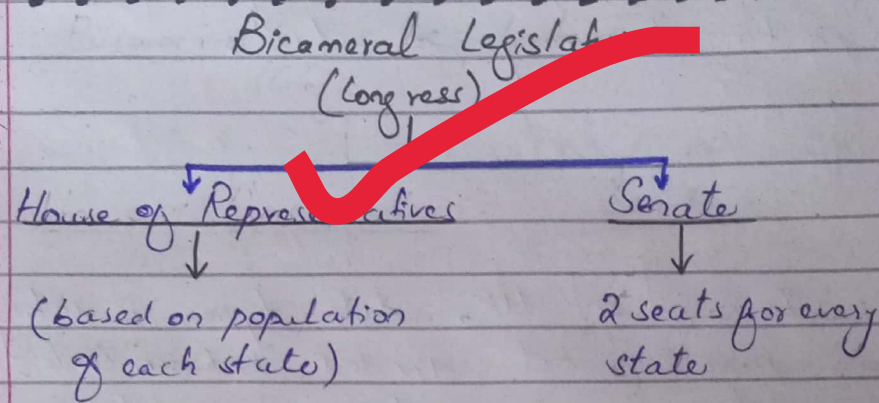 Bicameral Legislat
(Congress)
House of Representatives
Senate
(based on population
of each state)
2 seats for every
state